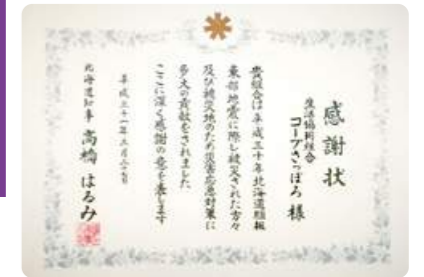 感謝状
生活協同組合
コープさっぽろ 様
貴組合は平成三十年北海道胆振
東部地震に際し被災された方々
及び被災地のため災害応急対策に
多大の貢献をされました
ここに深く感謝の意を表します
平成三十一年
北海道知事 高橋 はるみ